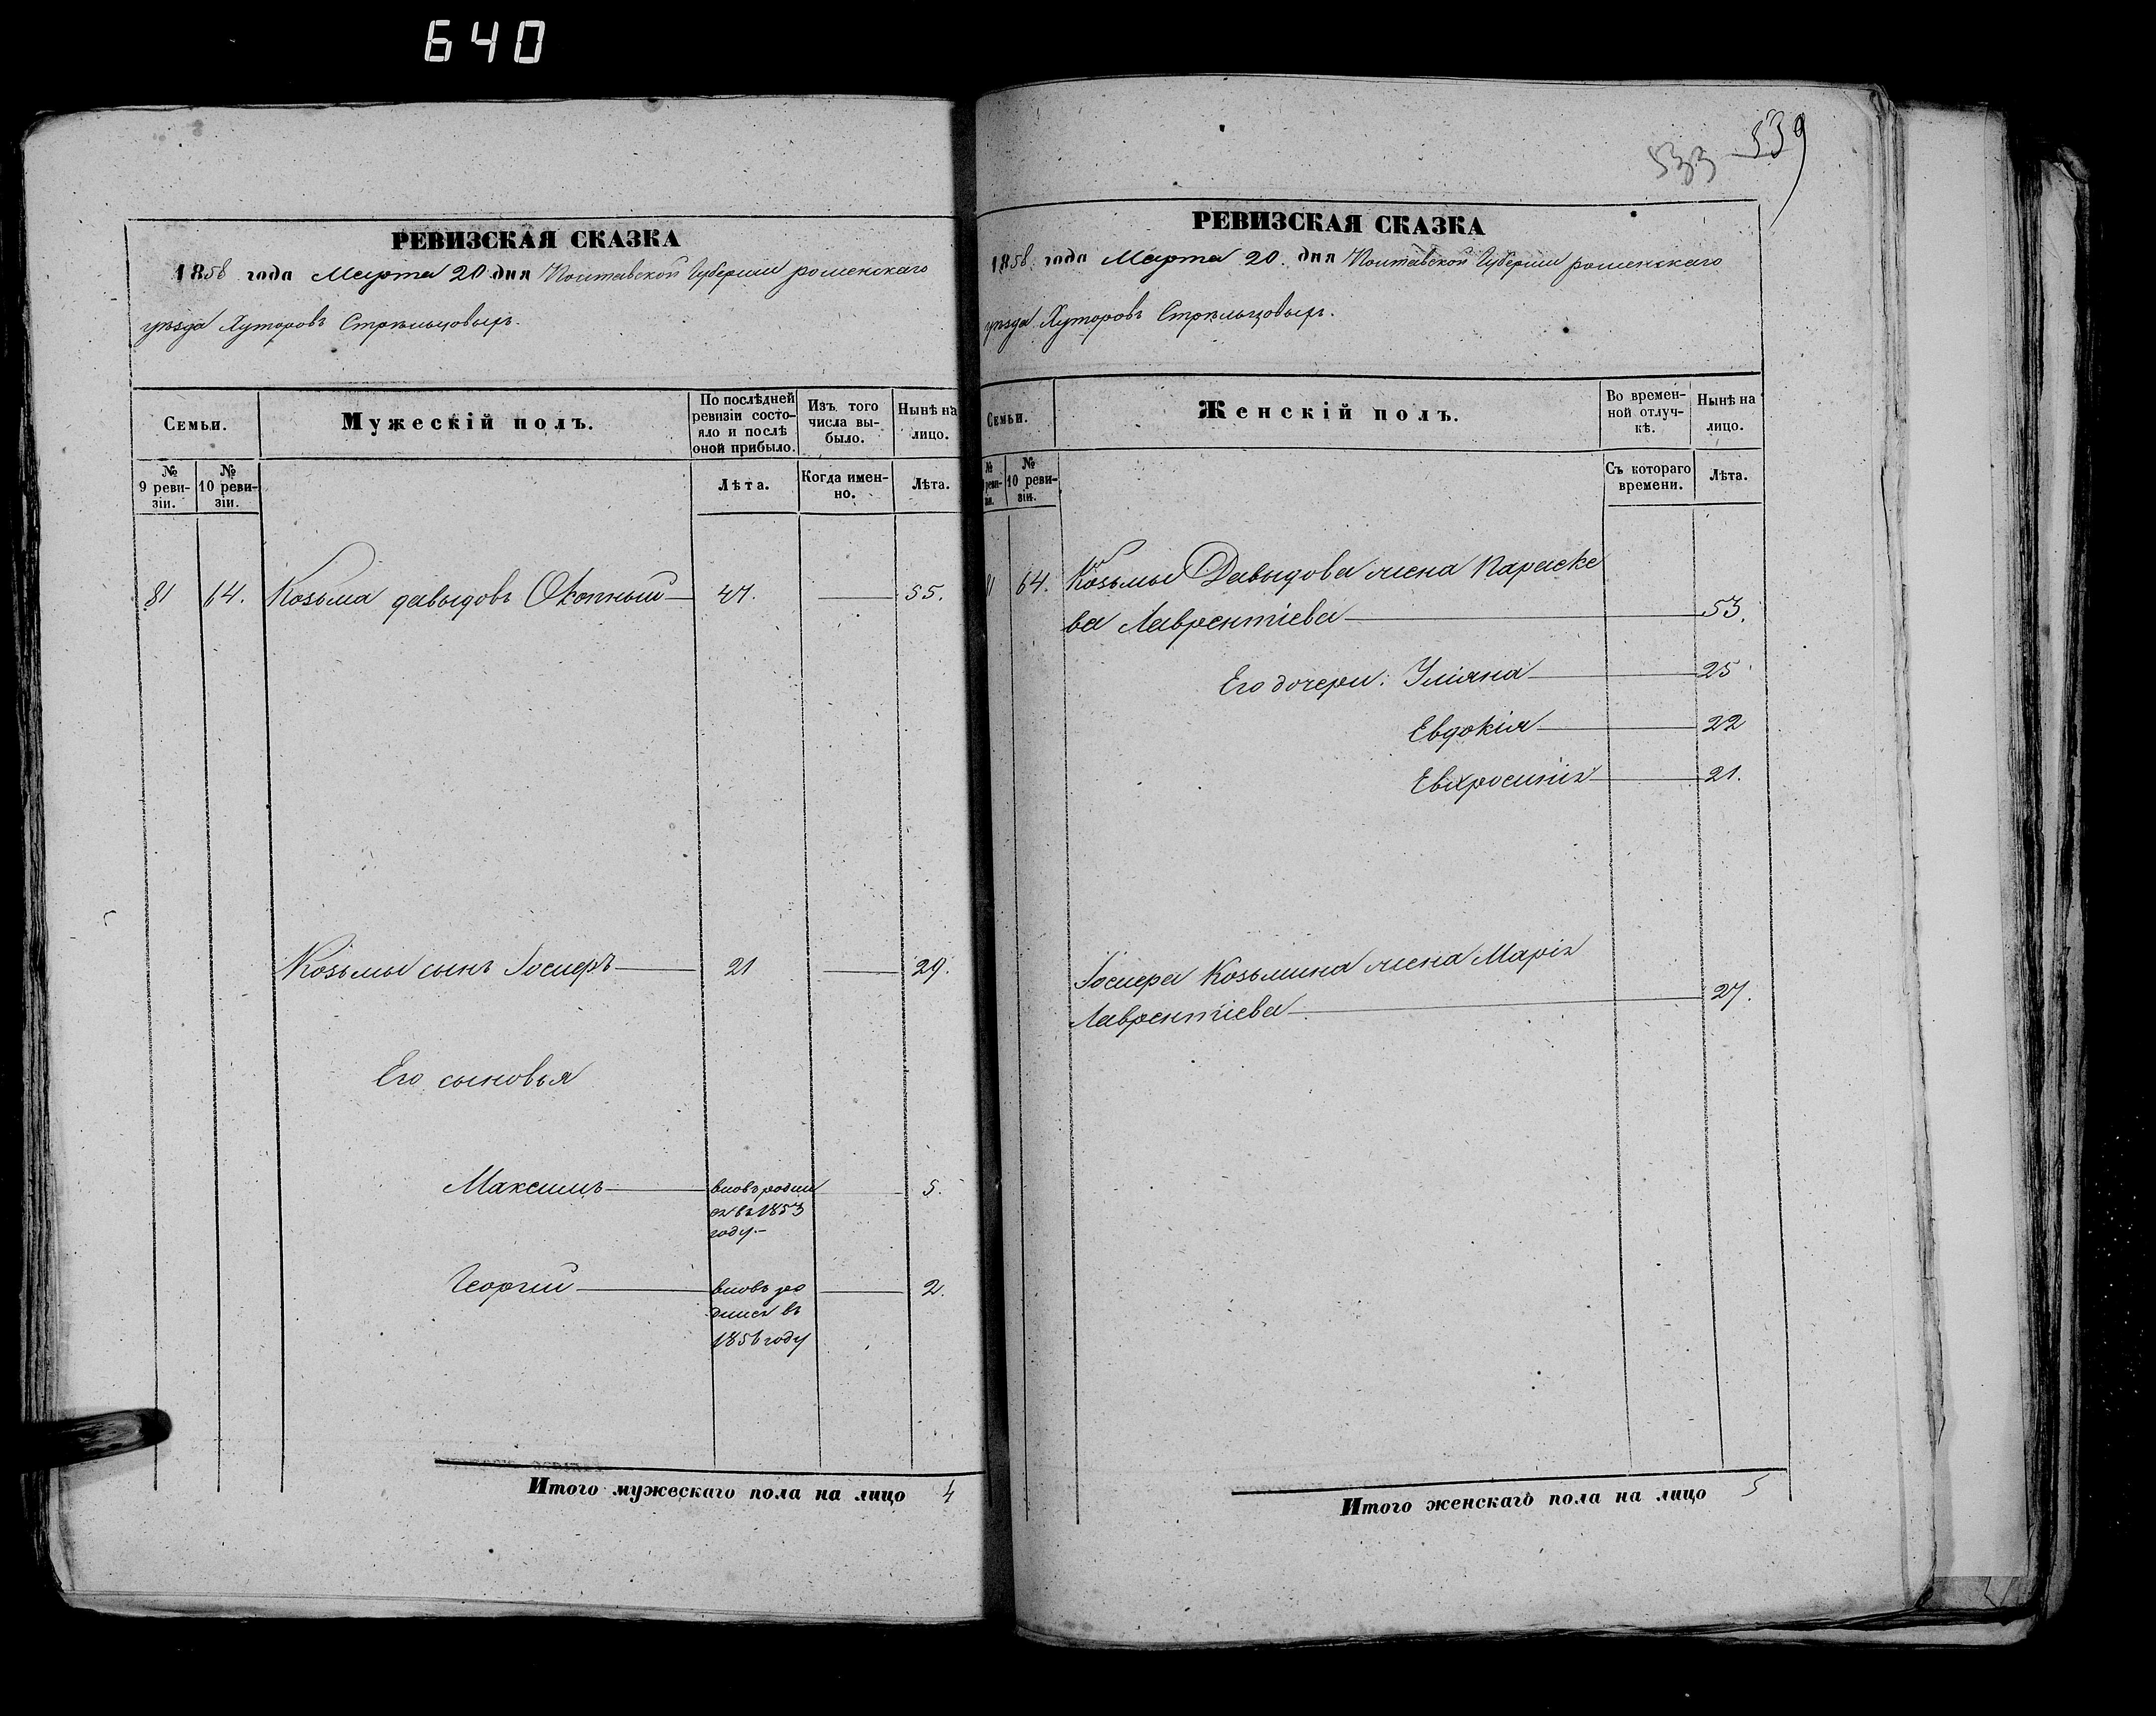 640
РЕВИЗСКАЯ СКАЗКА
1858 года Марта 20 дня Полтавской Губернии роменскаго
уѣзда Хуторовъ Стрѣльцовыхъ.
Семьи.
Мужескій полъ.
По послѣдней ревизіи состояло и послѣ оной прибыло.
Изъ того числа выбыло.
Нынѣ на лицо.
№ 9 ревизіи.
№ 10 ревизіи.
Лѣта.
Когда именно.
Лѣта.
81 64. Козьма давыдовъ Окопный 47. 55.
Козьмы сынъ Іосифъ 21 29.
Его сыновья
Максимъ вновь роди 5.
ся въ 1853
году.
Георгій вновь ро 2.
дился въ
1856 году
Итого мужескаго пола на лицо 4
533 539
РЕВИЗСКАЯ СКАЗКА
1858 года Марта 20. дня Полтавской Губернии роменскаго
уѣзда Хуторовъ Стрѣльцовыхъ.
Семьи.
Женскій полъ.
Во временной отлучкѣ.
Нынѣ на лицо.
№
10 ревизіи.
Съ котораго времени.
Лѣта.
64. Козьмы Давыдова жена Параске
ва Лаврентіева 53.
Его дочери: Уліяна 25
Евдокія 22
Евфросинія 21.
Іосифа Козьмина жена Марія
Лаврентіева 27.
Итого женскаго пола на лицо 5